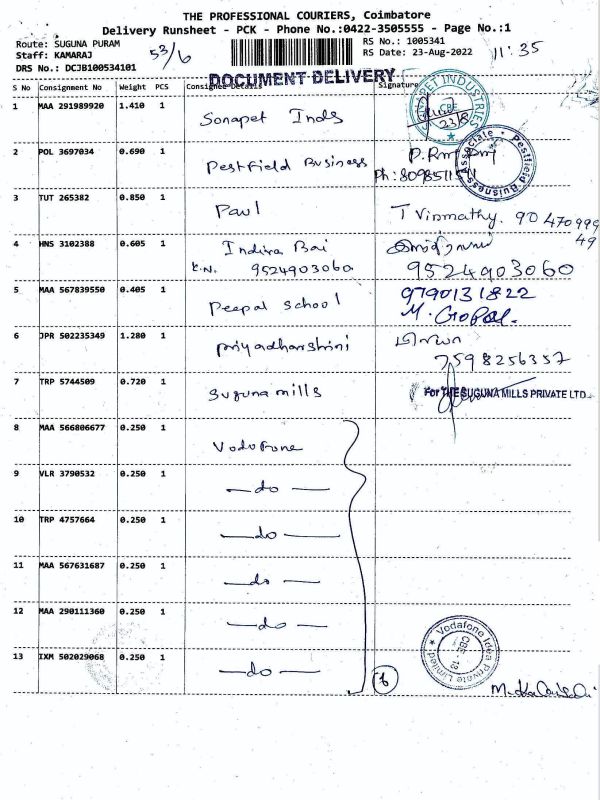 THE PROFESSIONAL COURIERS, Coimbatore
Delivery Runsheet - PCK - Phone No.:0422-3505555 - Page No.:1
Route: SUGUNA PURAM 53/6 RS No.: 1005341 11:35
Staff: KAMARAJ RS Date: 23-Aug-2022
DRS No.: DCJB100534101
DOCUMENT DELIVERY
S No Consignment No Weight PCS Consignee Details Signature
1 MAA 291989920 1.410 1 Sonapet Inds
23/8
CBE
2 POL 3697034 0.690 1 Pestfield Business
Associate Pestfield Business
3 TUT 265382 0.850 1 Paul T Vinmathy. 90 470999
49
4 HNS 3102388 0.605 1 Indira Bai
9524903060 9524903060
5 MAA 567839550 0.405 1 Peepal School 9790131822
M. Gopal.
6 JPR 502235349 1.280 1 Priyadharshini
7598256357
7 TRP 5744509 0.720 1 Suguna mills For THE SUGUNA MILLS PRIVATE LTD.
8 MAA 566806677 0.250 1 Vodofone
9 VLR 3790532 0.250 1 — do —
10 TRP 4757664 0.250 1 — do —
11 MAA 567631687 0.250 1 — do —
12 MAA 290111360 0.250 1 — do —
13 IXM 502029068 0.250 1 — do — 6
Vodafone Idea Private Limited